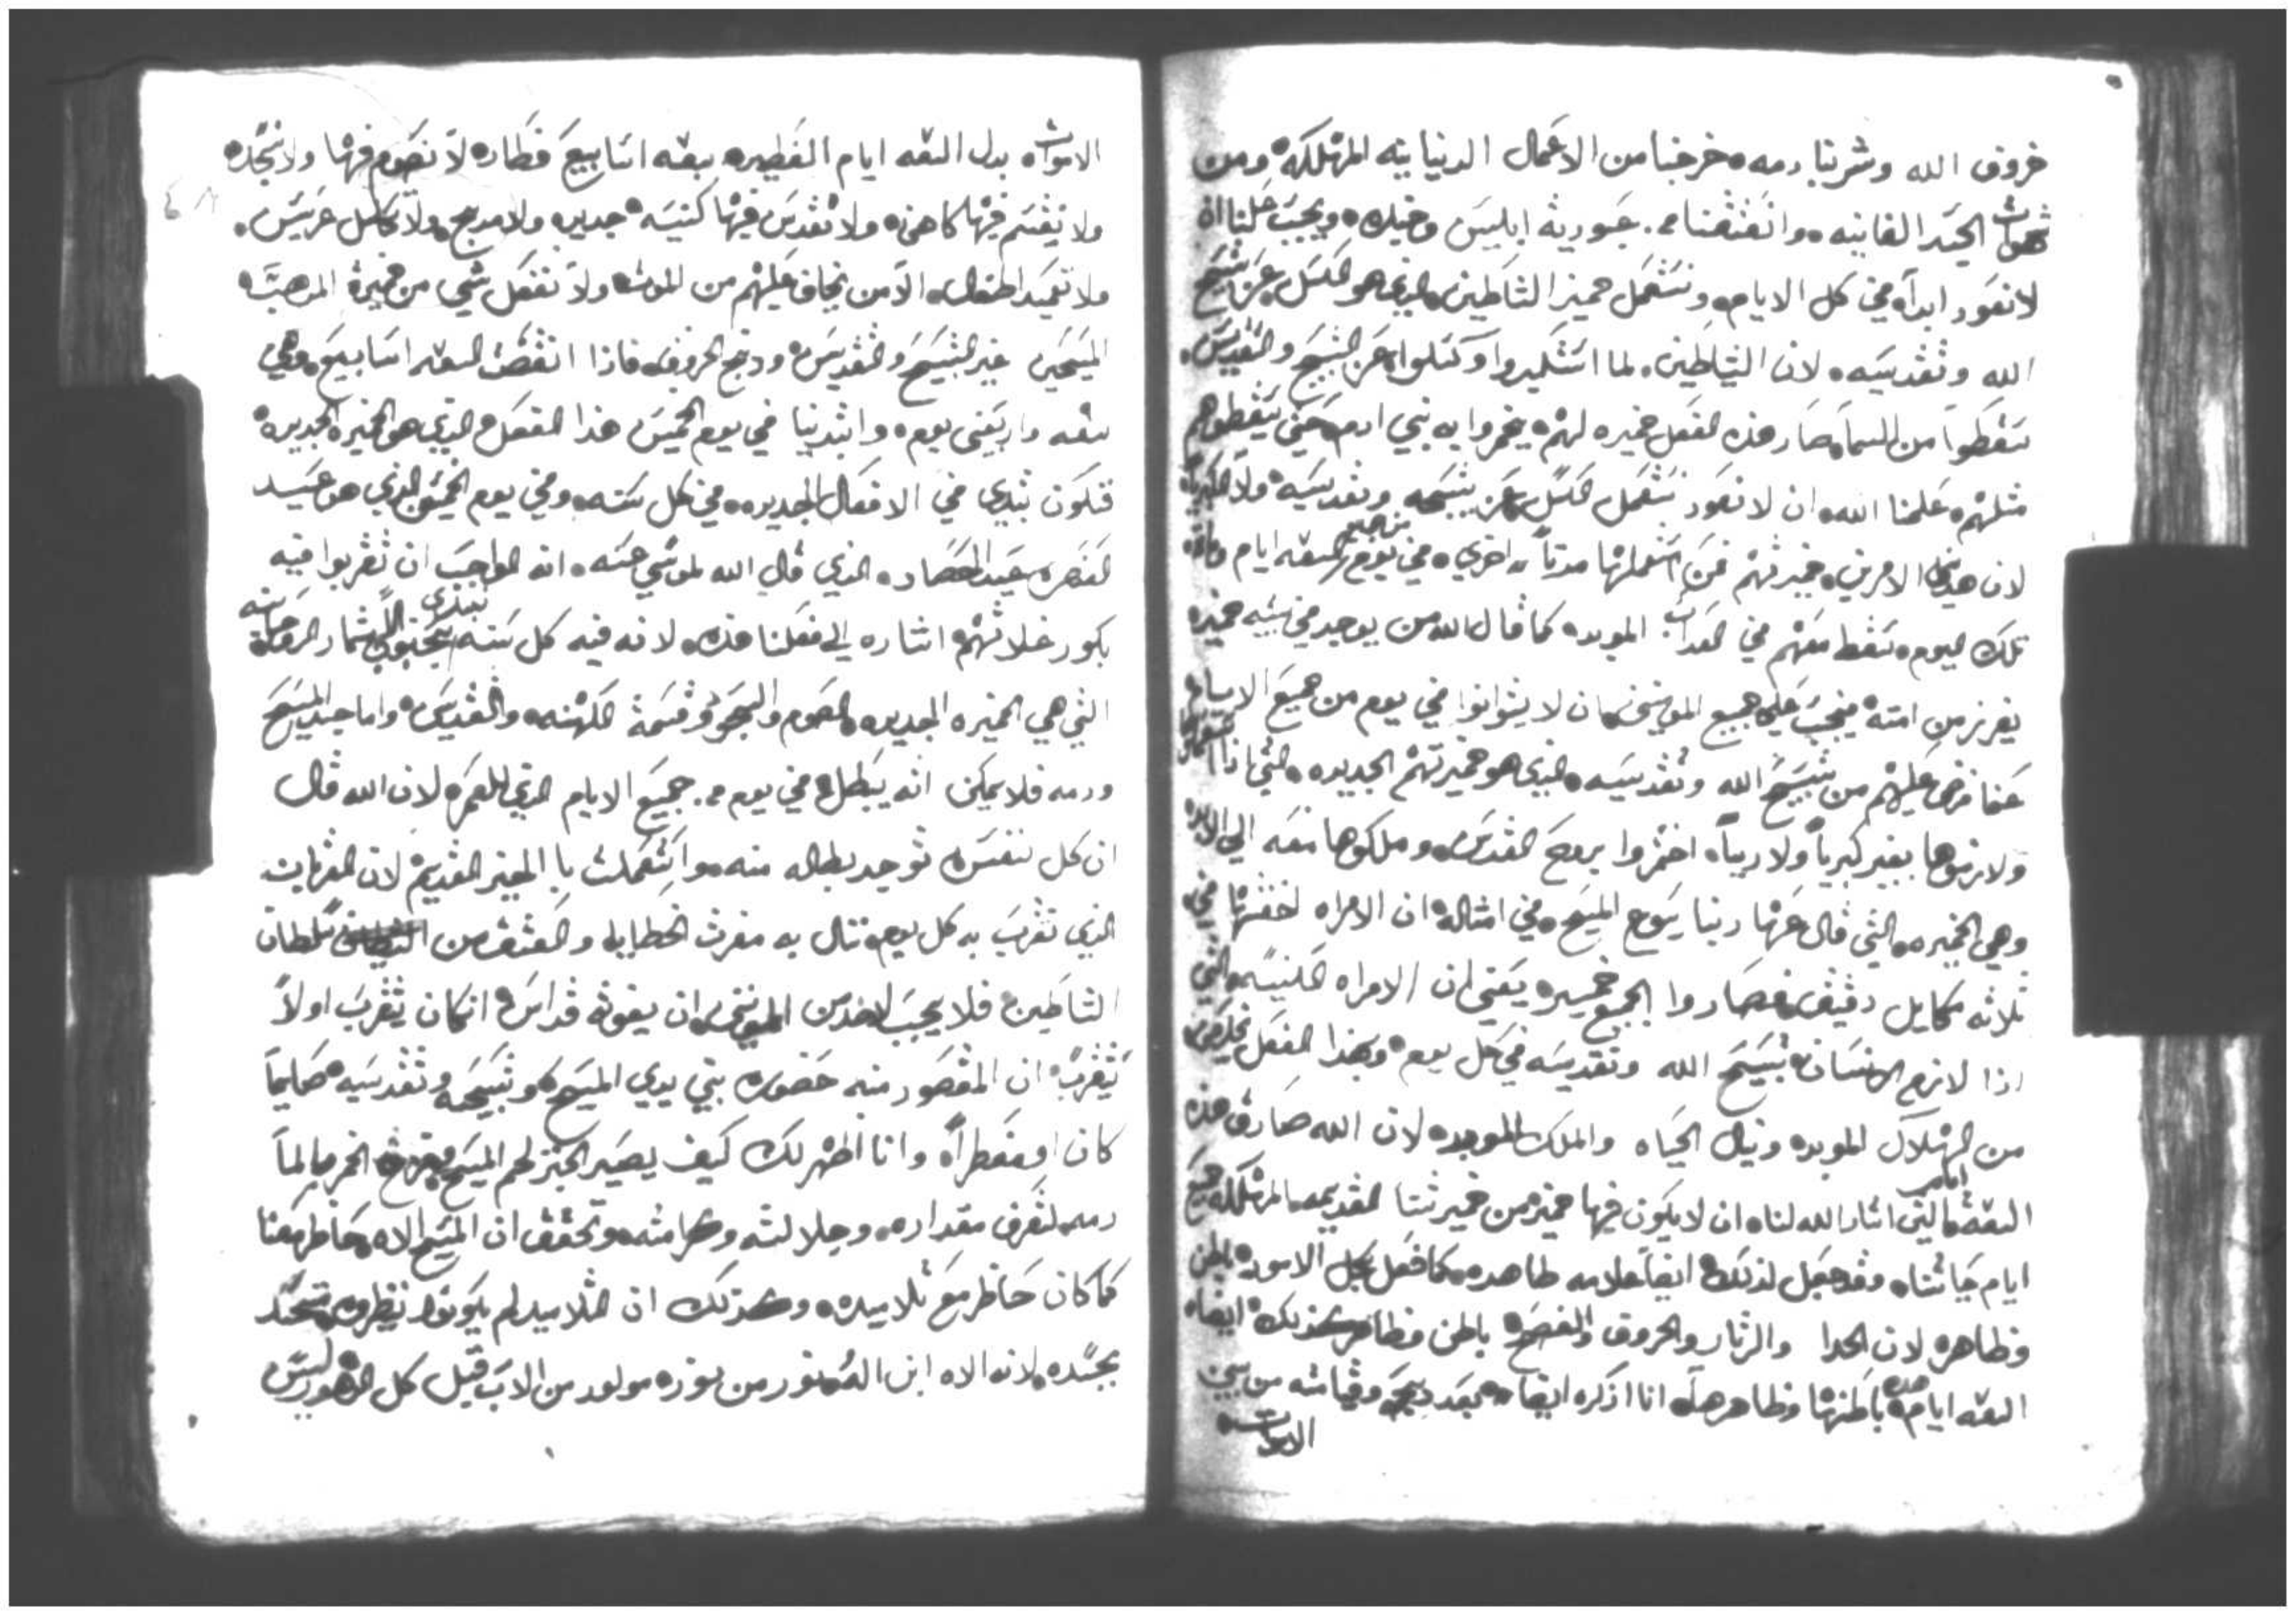 خروف الله وشربنا دمه خرجنا من الاعمال الدنيانيه المهلكه ومن
شهوات الجسد الفانيه وانعتقنا من عبوديه ابليس وخيله ويجب علينا ان
لا نعود ابداً في كل الايام ونستعمل خمير الشياطين الذي هو الكسل عن تسبيح
الله وتقديسه لان الشياطين لما استكبروا وكسلوا عن التسبيح والتقديس
سقطوا من السما صار هذه الفعل خميره لهم يخمروا به بني ادم حتي يسقطوهم
مثلهم علمنا الله ان لا نعود نستعمل الكسل عن تسبحه وتقديسه ولا الكبريا
لان هذين الامرين خميرتهم فمن استعملها مرتاً اخري في يوم من جميع السبعه ايام
تلك اليوم سقط معهم في العداب الموبده كما قال الله من يوجد في بيته خميره
يفرز من امته فيجب علي جميع المومنين ان لا يتوانوا في يوم من جميع الايام
عما فرض عليهم من تسبيح الله وتقديسه الذي هو خميرتهم الجديده التي اذا استعملوها
ولازموها بغير كبرياً ولا رياً اختمروا بروح القدس وملكوها معه الي الابد
وهي الخميره التي قال عنها ربنا يسوع المسيح في امثاله ان الامراه اخفتها في
ثلاثه مكاييل دقيق فصاروا الجميع خميره يعني ان الامراه الكنيسه التي
اذا لازم الانسان تسبيح الله وتقديسه في كل يوم وبهذا الفعل يخلص
من الهلاك الموبده وينال الحياه والملك الموبده لان الله صادق هذه
السبعه ايام التي اشار الله لنا ان لا يكون فيها خمير من خميرتنا القديمه المهلكه جميع
ايام حياتنا وقد جعل لذلك ايضاً علامه ظاهره كما فعل بكل الامور باطن
وظاهره لان الحدا والزنار والخروف والفصح باطن وظاهر كذلك ايضاً
السبعه ايام هذه باطنها وظاهرها انا اذكره ايضاً بعد ذبيحه وقيامته من بين
الاموات
الاموات بدل السبعه ايام الفطيره سبعه اسابيع فطاره لا نصوم فيها ولا نسجد
ولا نقسم فيها كاهن ولا نقدس فيها كنيسه جديده ولا مدبح ولا نكلل عريس
ولا نعمد اطفال الا من يخاف عليهم من الموت ولا نفعل شي من خميرة المدهب
المسيحين غير التسبيح والتقديس ودبح الخروف فاذا انقضت السبعه اسابيع وهي
سبعه واربعين يوم وابتدينا في يوم الخمسين هذا الفعل الذي هو الخميره الجديده
فنكون نبتدي في الافعال الجديده في كل سنه وفي يوم الخمسين الذي هو عيد
العنصره عيد الحصاد الذي قال الله لموسي عنه انه الواجب ان تقربوا فيه
بكور غلاتهم اشاره الي فعلنا هذه لانه فيه كل سنه نبتدي الثمار الروحانيه
التي هي الخميره الجديده الصوم والسجود وقسمة الكهنه والتقديس واما جسد المسيح
ودمه فلا يمكن انه يبطل في يوم من جميع الايام الذي للعمر لان الله قال
ان كل نفس توجد بطاله منه واستعملت بالخمير القديم لان القربان
الذي نقرب به كل يوم ننال به مغفرت الخطايا والعتق من سلطان
الشياطين فلا يجب لاحد من المومنين ان يفوته قداس انكان يتقرب اولاً
يتقرب ان المقصود منه حضوره بين يدي المسيح وتسبيحه وتقديسه صايماً
كان او مفطراً وانا اظهر لك كيف يصير الخبز لحم المسيح ومزج الخمر بالما
دمه لتعرف مقداره وجلالته وكرامته وتحقق ان المسيح الاه حاظر معنا
كما كان حاظر مع تلاميده وكذلك ان التلاميد لم يكونوا ينظروه متحد
بجسده لانه الاه ابن اله نور من نوره مولود من الاب قبل كل الدهور ليس